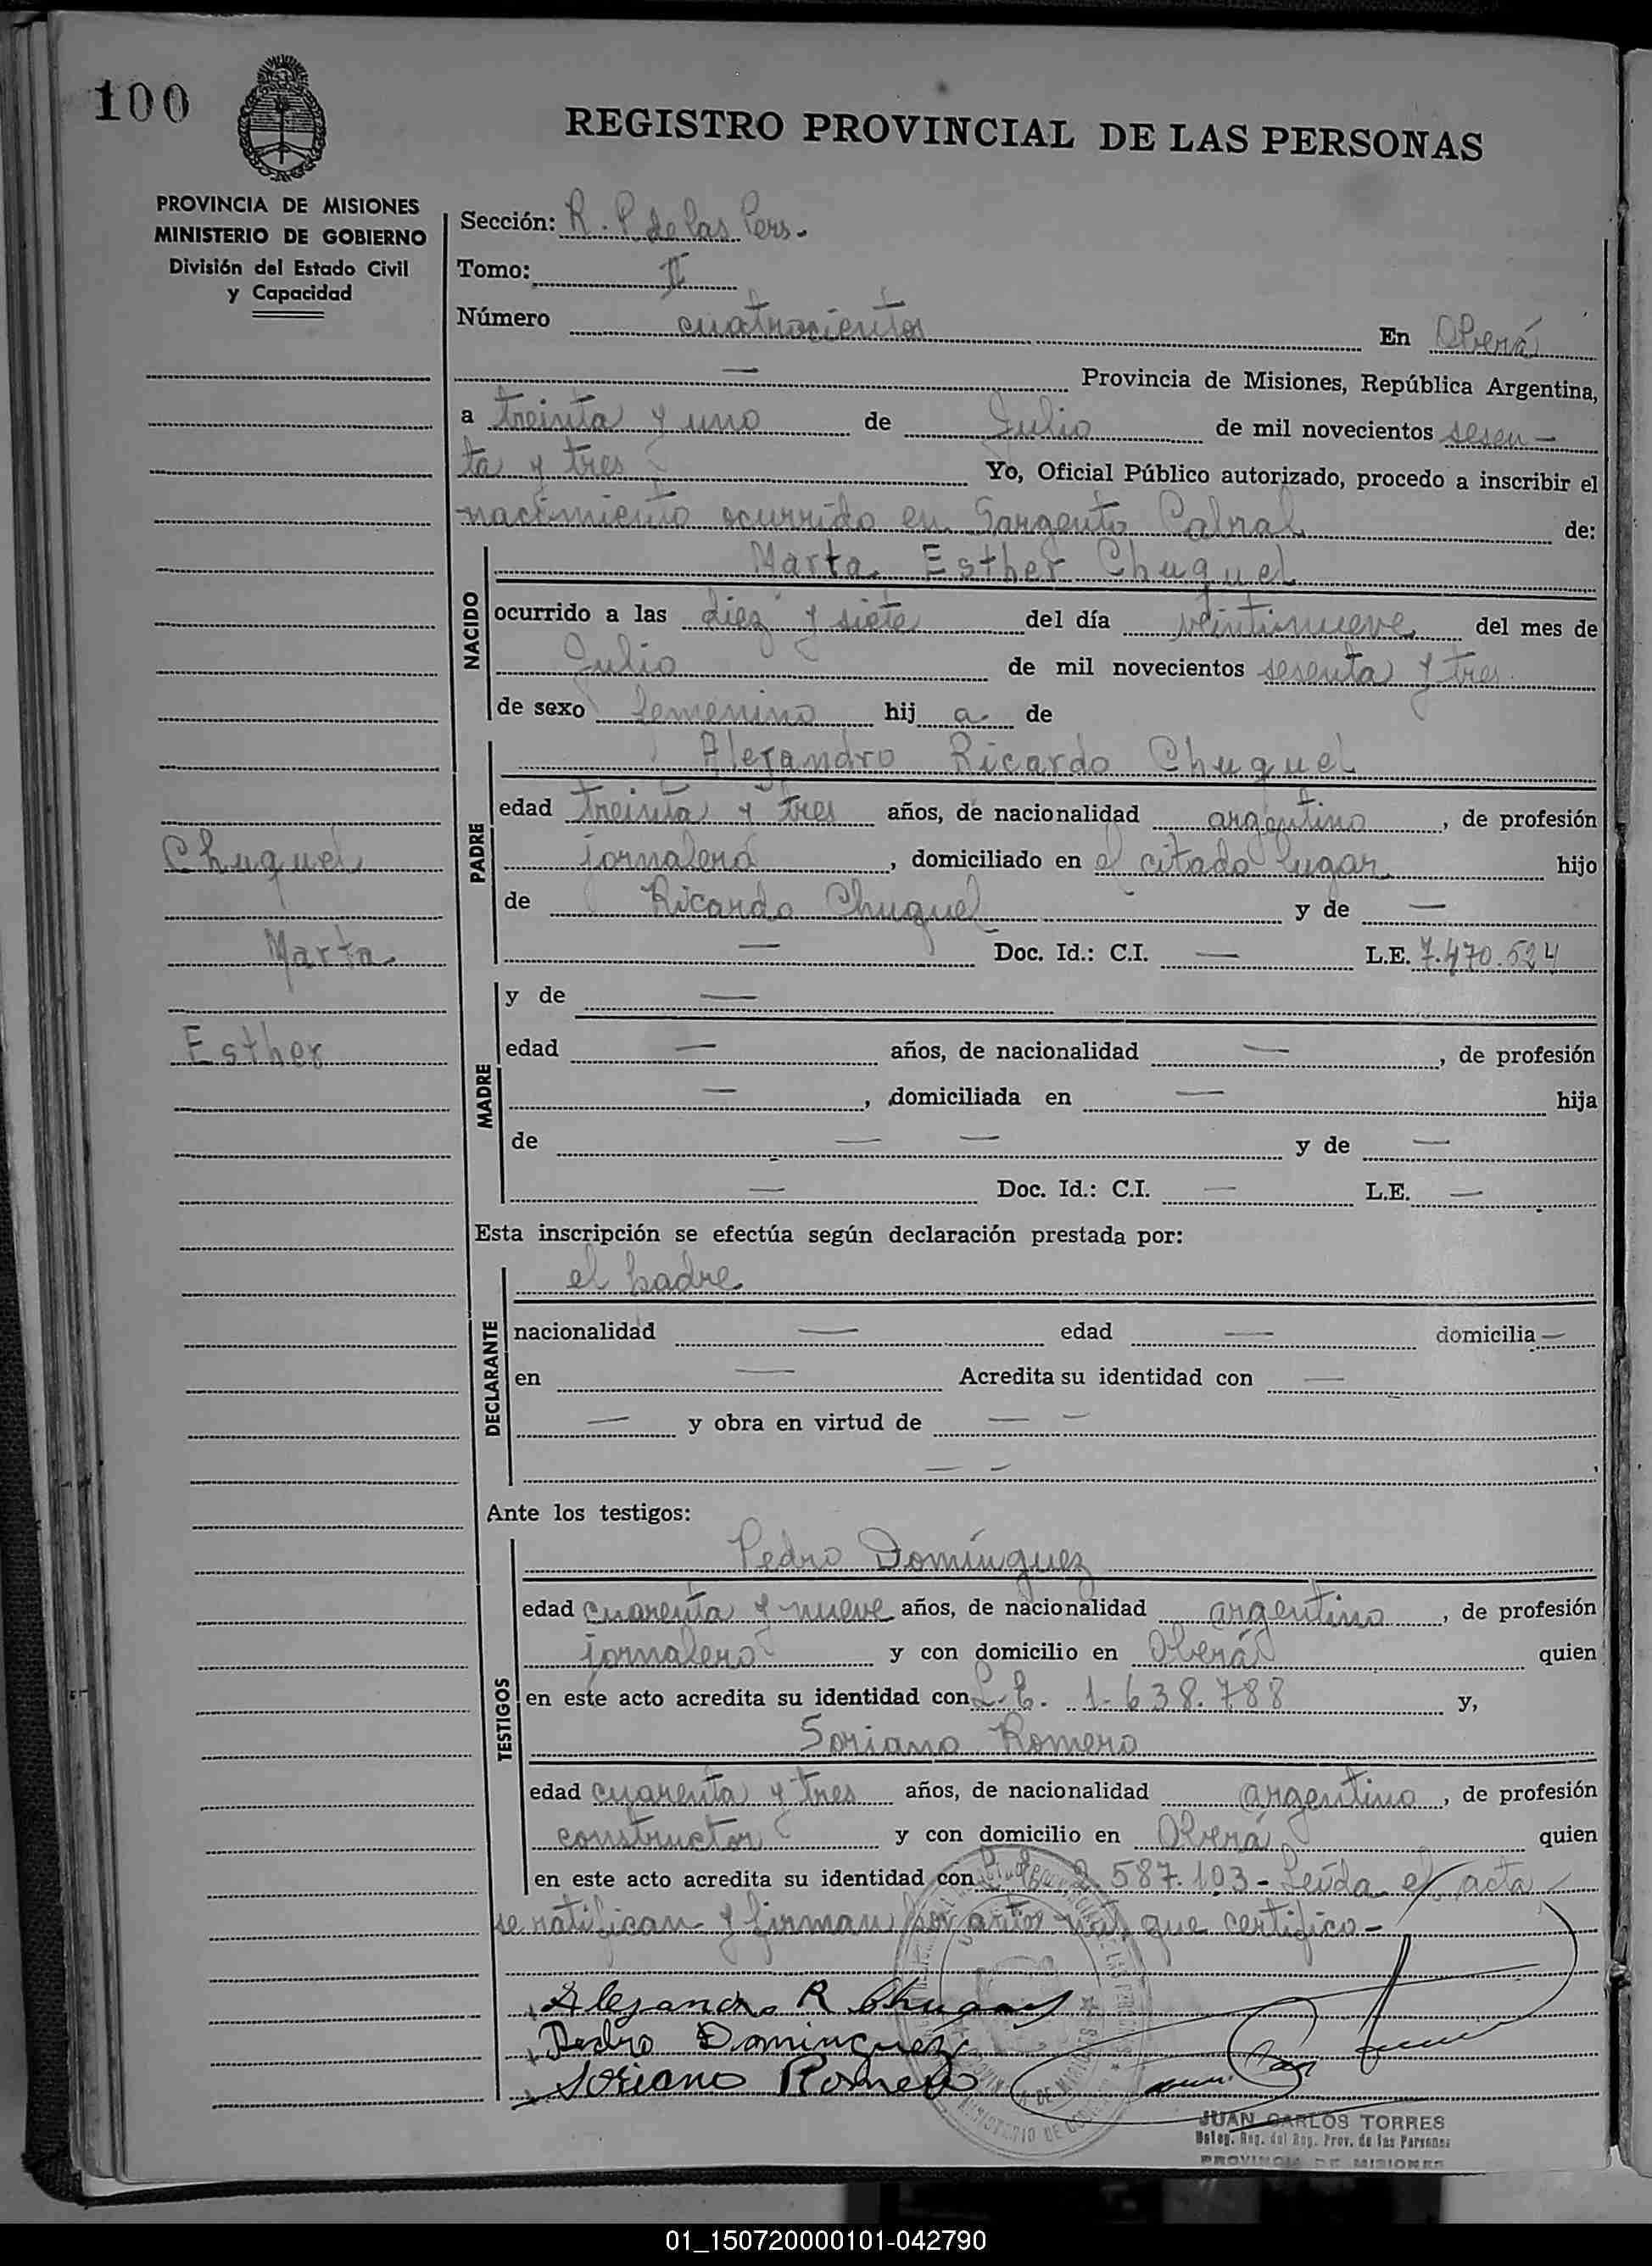 100
REGISTRO PROVINCIAL DE LAS PERSONAS
PROVINCIA DE MISIONES
MINISTERIO DE GOBIERNO
División del Estado Civil
y Capacidad
Sección: R. P. de las Pers.
Tomo: II
Número cuatrocientos En Oberá
— Provincia de Misiones, República Argentina,
a treinta y uno de Julio de mil novecientos sesen-
ta y tres Yo, Oficial Público autorizado, procedo a inscribir el
nacimiento ocurrido en Sargento Cabral de:
NACIDO
Marta Esther Chuquel
ocurrido a las diez y siete del día veintinueve del mes de
Julio de mil novecientos sesenta y tres
de sexo femenino hij a de
PADRE
Alejandro Ricardo Chuquel
edad treinta y tres años, de nacionalidad argentino, de profesión
jornalero, domiciliado en el citado lugar hijo
de Ricardo Chuquel y de —
— Doc. Id.: C.I. — L.E. 7.470.524
Chuquel
Marta
Esther
MADRE
y de —
edad — años, de nacionalidad —, de profesión
—, domiciliada en — hija
de — — y de —
— Doc. Id.: C.I. — L.E. —
Esta inscripción se efectúa según declaración prestada por:
DECLARANTE
el padre
nacionalidad — edad — domicilia —
en — Acredita su identidad con —
— y obra en virtud de — —
— —
Ante los testigos:
TESTIGOS
Pedro Domínguez
edad cuarenta y nueve años, de nacionalidad argentino, de profesión
jornalero y con domicilio en Oberá quien
en este acto acredita su identidad con L.E. 1.638.788 y,
Soriano Romero
edad cuarenta y tres años, de nacionalidad argentino, de profesión
constructor y con domicilio en Oberá quien
en este acto acredita su identidad con 2.587.103 - Leída el acta
se ratifican y firman por ante mí que certifico -
Alejandro R Chuquel
Pedro Dominguez
Soriano Romero
JUAN CARLOS TORRES
Deleg. Reg. del Reg. Prov. de las Personas
PROVINCIA DE MISIONES
01_150720000101-042790